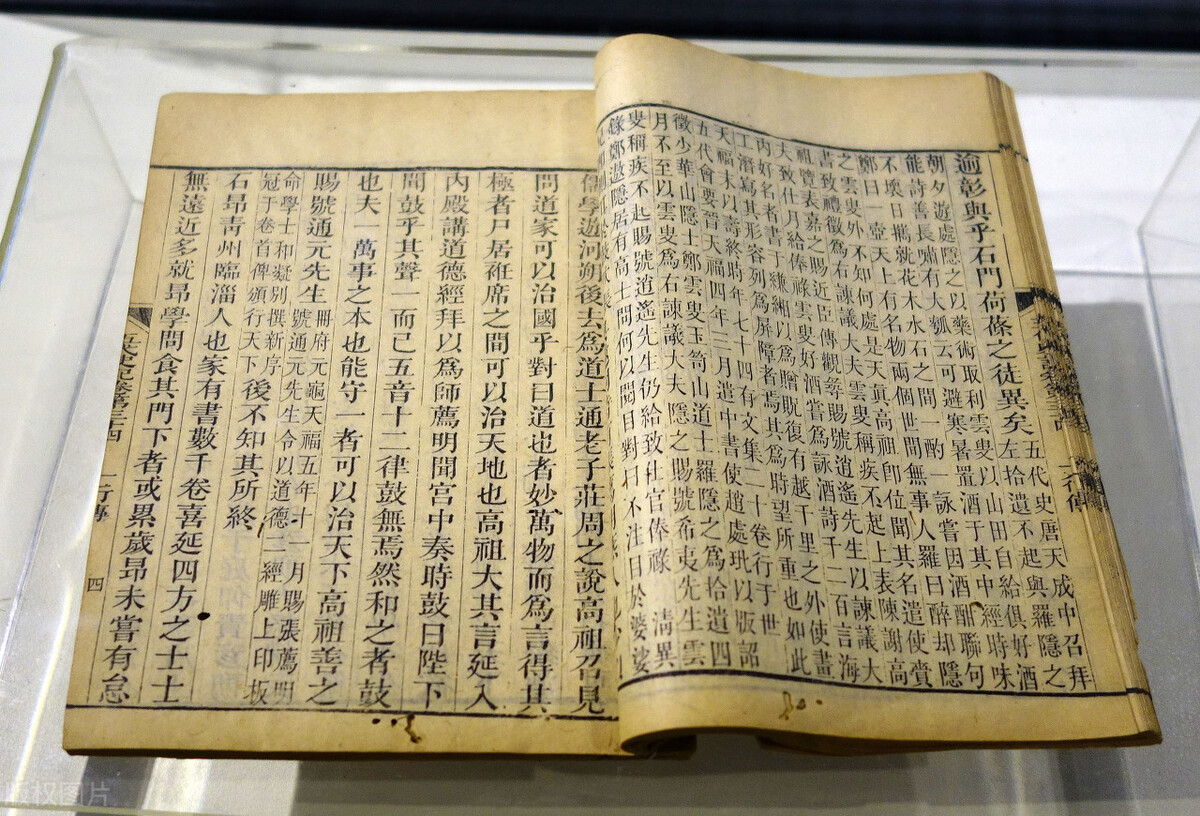 逾彰與乎石門荷蓧之徒異矣五代史唐天成中召拜
左拾遺不起與羅隱之
朝夕遊處隱之以藥術取利雲叟以山田自給俱好酒
能詩善長嘯有大瓢云可避寒暑置酒于其中經時味
不壞日擕就花木水石之間一酌一詠嘗因酒酣聯句
鄭曰一壺天上有名物兩個世間無事人羅曰醉却隱
之雲叟外不知何處是天真高祖卽位聞其名遣使賞
書致禮徵爲右諫議大夫雲叟稱疾不起上表陳謝高
祖覽表嘉之賜近臣傳觀尋賜號逍遙先生以諫議大
夫致仕月給俸祿雲叟好酒嘗爲詠酒詩千二百言海
內好名者書于縑緗以爲贈貺復有越千里之外使畫
工潛寫其形容列爲屏障者焉其爲時望所重也如此
天福末以壽終時年七十四有文集二十卷行于世
五代會要晉天福四年二月遣中書使趙處玭以版詔
徵少華山隱士鄭雲叟玉笥山道士羅隱之爲拾遺四
月不至以雲叟爲右諫議大夫隱之賜號希夷先生雲
叟稱疾不起賜號逍遙先生仍給致仕官俸祿 淸異
錄鄭遨隱居有高士問何以閱目對曰不注目於婆娑
儒學遊河朔後去爲道士通老子莊周之說高祖召見
問道家可以治國乎對曰道也者妙萬物而爲言得其
極者尸居袵席之間可以治天地也高祖大其言延入
內殿講道德經拜以爲師薦明聞宮中奏時鼓曰陛下
聞鼓乎其聲一而已五音十二律鼓無焉然和之者鼓
也夫一萬事之本也能守一者可以治天下高祖善之
賜號通元先生冊府元龜天福五年十一月賜張薦明
號通元先生令以道德二經雕上印板
命學士和凝別撰新序
冠于卷首俾頒行天下後不知其所終
石昂靑州臨淄人也家有書數千卷喜延四方之士士
無遠近多就昂學問食其門下者或累歲昂未嘗有怠
一行傳
四
版权图片